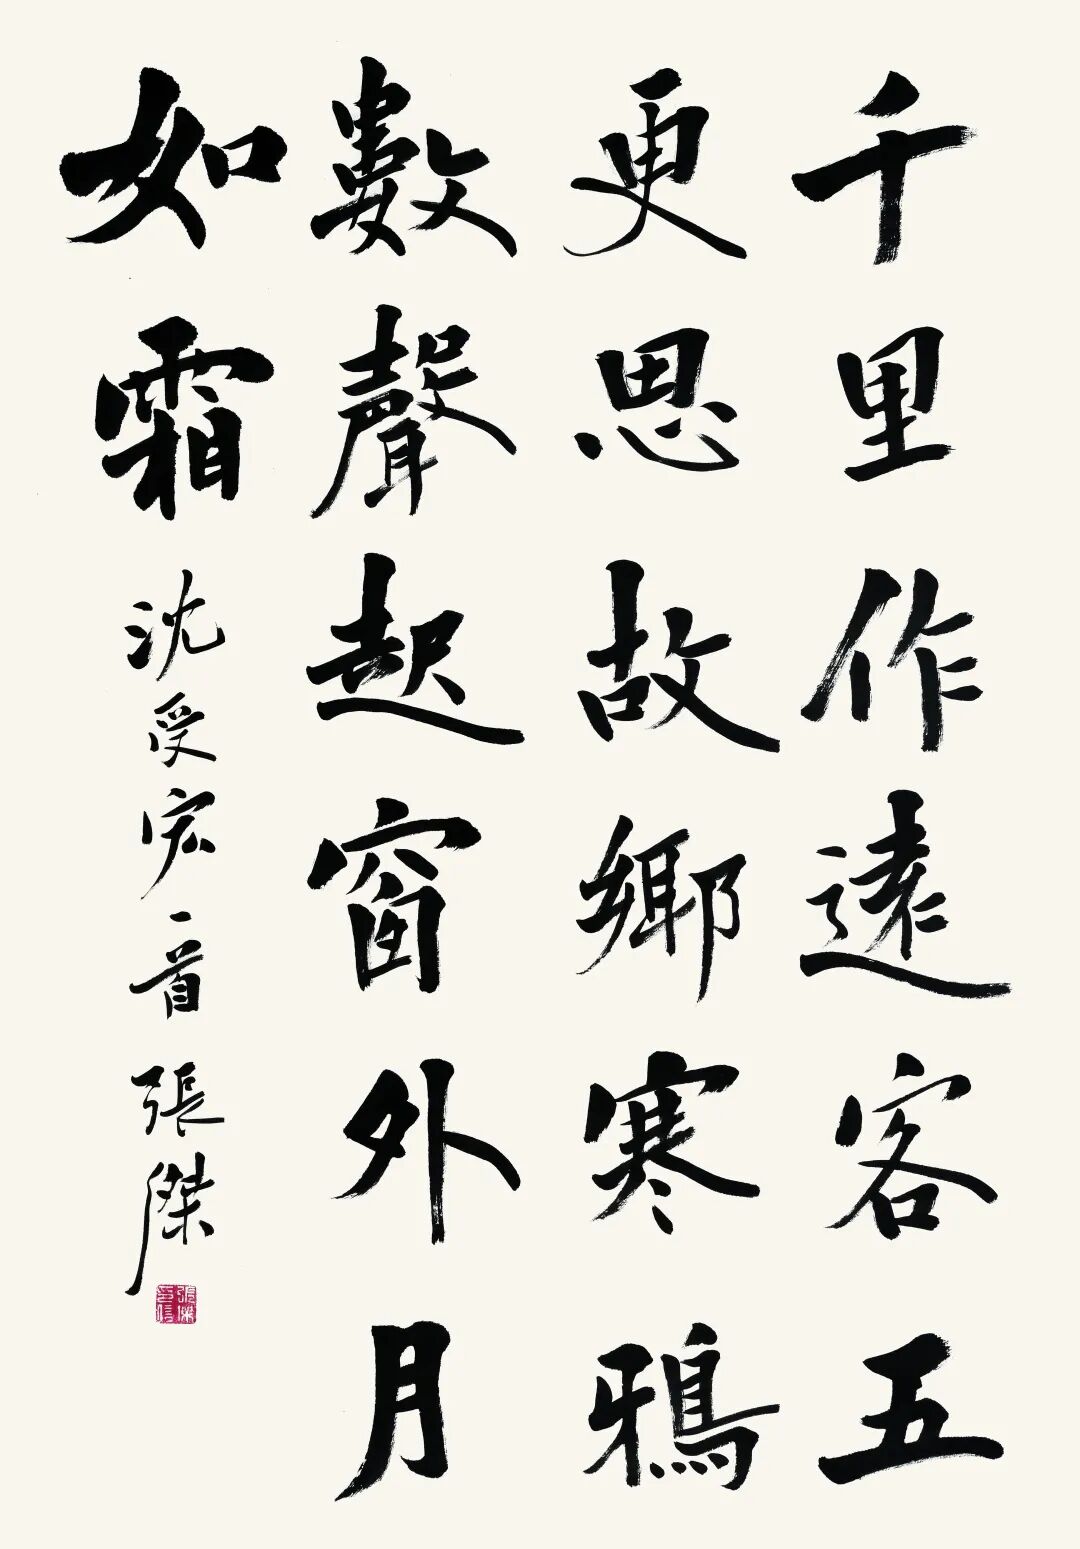 千里作遠客五
更思故鄉寒鴉
數聲起窗外月
如霜
沈受宏一首 張傑